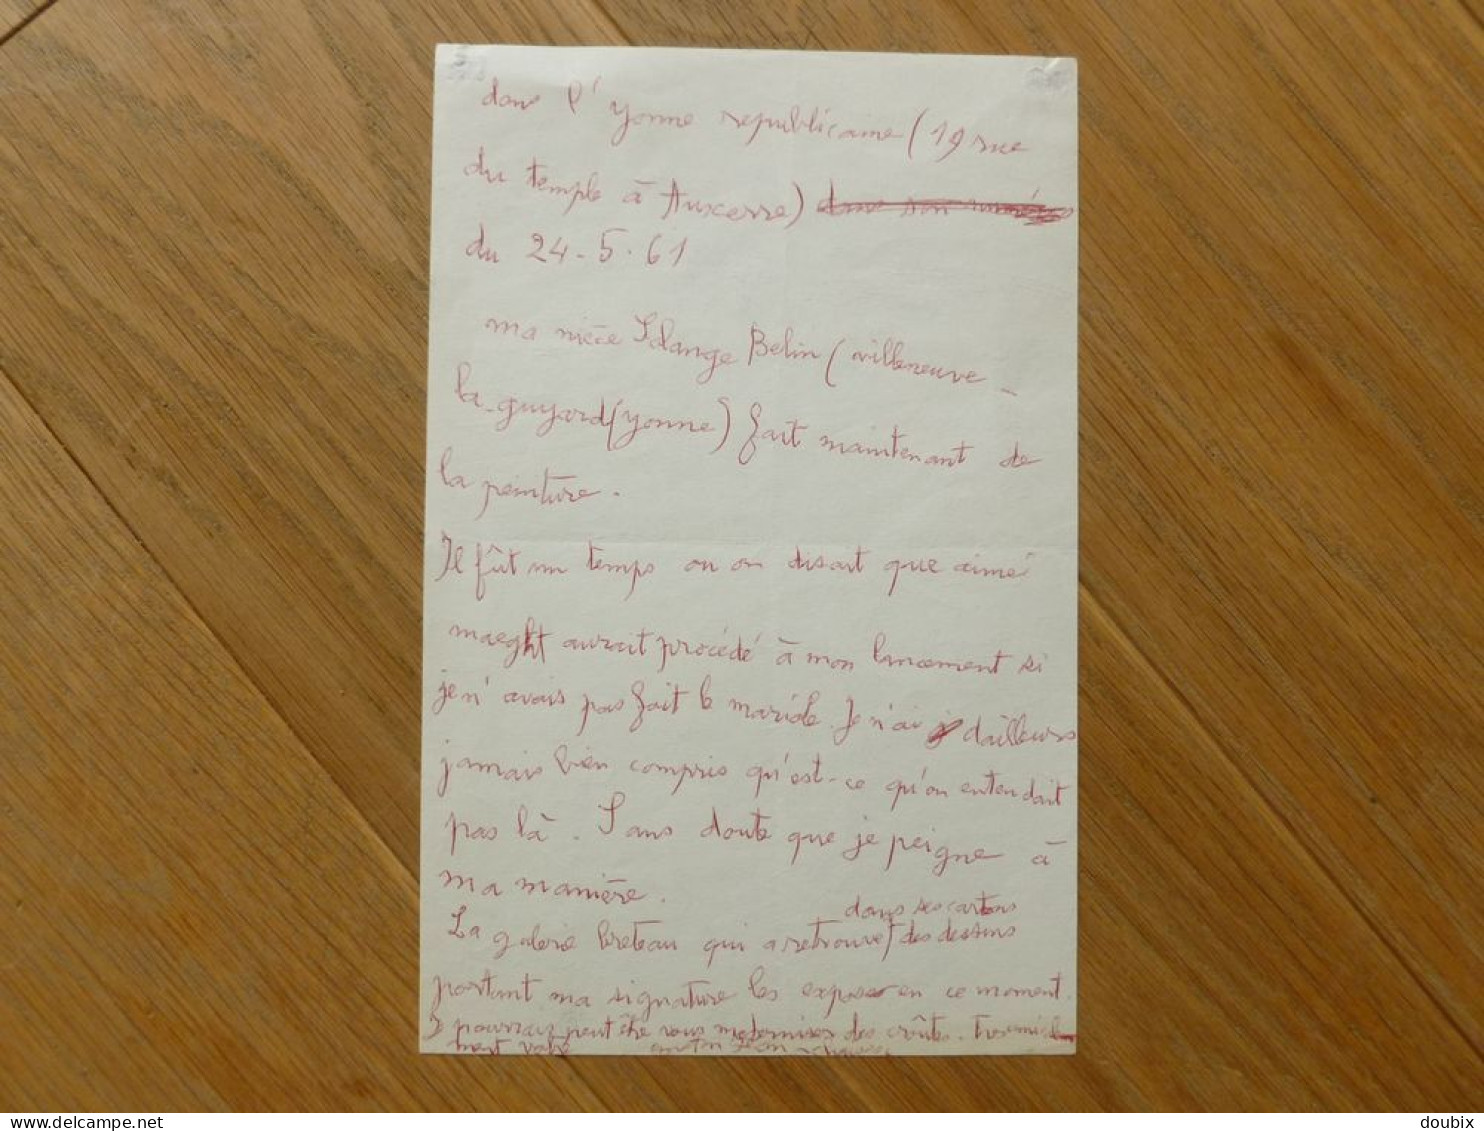 dans l'yonne republicaine (19 rue
du temple à Auxerre) dans son numéro
du 24-5.61
ma nièce Solange Belin (villeneuve-
la-guyard (yonne) fait maintenant de
la peinture.
Il fût un temps ou on disait que aimé
maeght aurait procédé à mon lancement si
je n'avais pas fait le mariole. Je n'ai dailleurs
jamais bien compris qu'est-ce qu'on entendait
pas là. Sans doute que je peigne à
ma manière.
dans ses cartons
La galerie breteau qui a retrouvé des dessins
portant ma signature les expose en ce moment.
pourrais peut être vous moderniser des croûtes.
www.delcampe.net
doubix